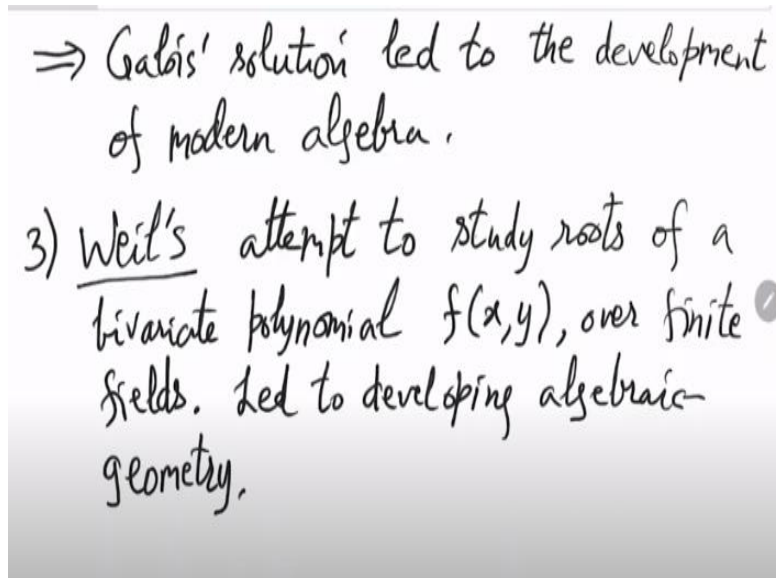 ⇒ Galois' solution led to the development
of modern algebra.
3) Weil's attempt to study roots of a
bivariate polynomial f(x,y), over finite
fields. Led to developing algebraic-
geometry.